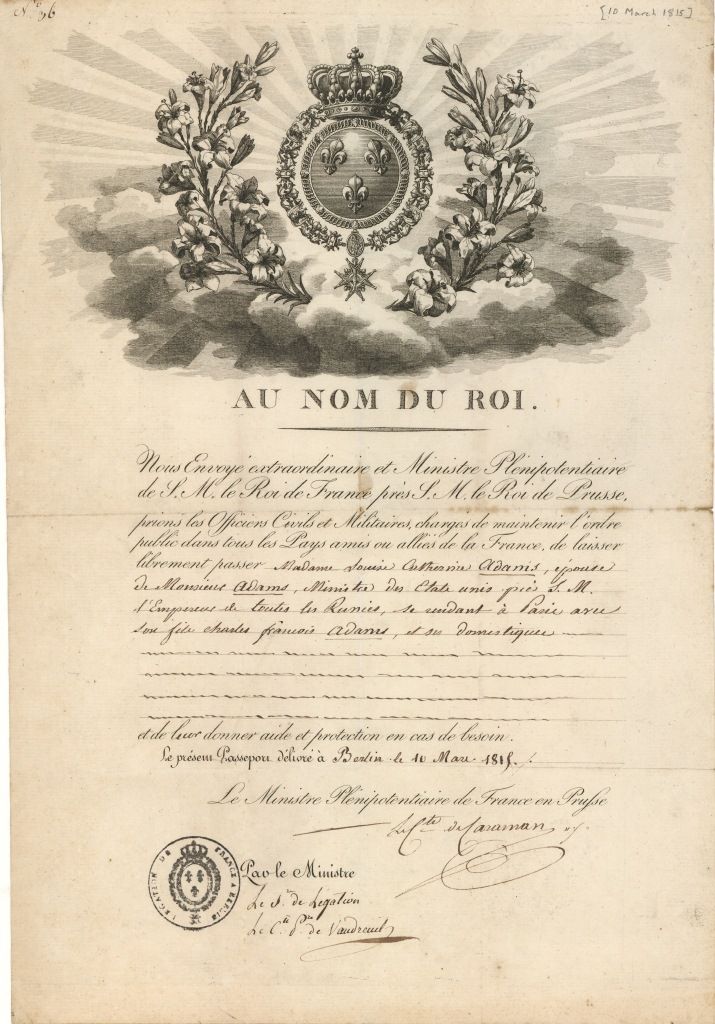 N.° 96
[10 March 1815]
AU NOM DU ROI.
Nous Envoyé extraordinaire et Ministre Plénipotentiaire
de S. M. le Roi de France près S. M. le Roi de Prusse,
prions les Officiers Civils et Militaires, chargés de maintenir l'ordre
public dans tous les Pays amis ou alliés de la France, de laisser
librement passer Madame Louise Catherine Adams, épouse
de Monsieur Adams, Ministre des Etats unis près S. M.
l'Empereur de toutes les Russies, se rendant à Paris avec
son fils charles françois Adams, et ses domestiques
et de leur donner aide et protection en cas de besoin.
Le présent Passeport délivré à Berlin le 10 Mars 1815.
Le Ministre Plénipotentiaire de France en Prusse
Le Cte de Caraman
LEGATION DE FRANCE A BERLIN
Par le Ministre
Le Sre de Légation
Le Cte de Vaudreuil